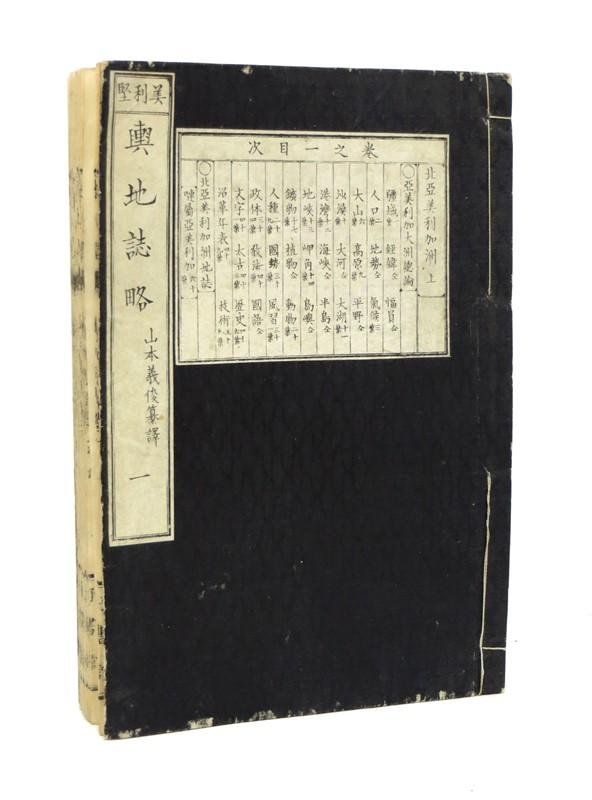 美利堅
輿地誌略
山本義俊纂譯
一
卷之一目次
北亞美利加洲上
〇亞美利加大洲總論
疆域 經緯 仝 幅員 仝
人口 地勢 仝 氣候
大山 高原 平野 仝
沙漠 大河 仝 大湖
港灣 海峽 仝 半島 仝
地峽 岬角 島嶼 仝
鑛物 植物 仝 動物
人種 國勢 風習
政体 教法 國語 仝
文字 太古 歴史
沿革年表 技術
〇北亞美利加洲地誌
嗹屬亞美利加